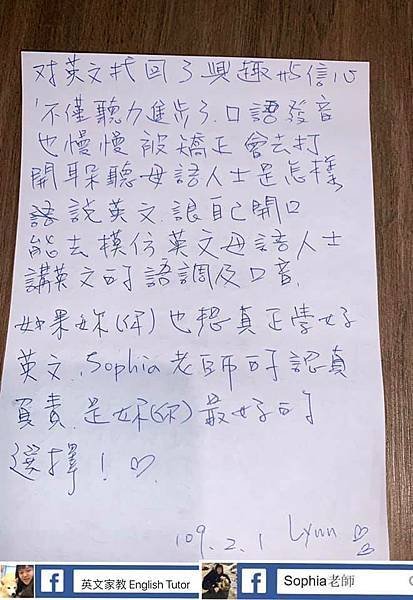 对英文找回了興趣与信心
不僅聽力進步了.口語發音
也慢慢被矯正會去打
開耳朵聽母語人士是怎樣
說英文.讓自己開口
能去模仿英文母語人士
講英文的語調及口音.
如果妳(你)也想真正學好
英文.Sophia老師的認真
負責.是妳(你)最好的
選擇!♡
109.2.1 Lynn ♡
英文家教 English Tutor
Sophia老師